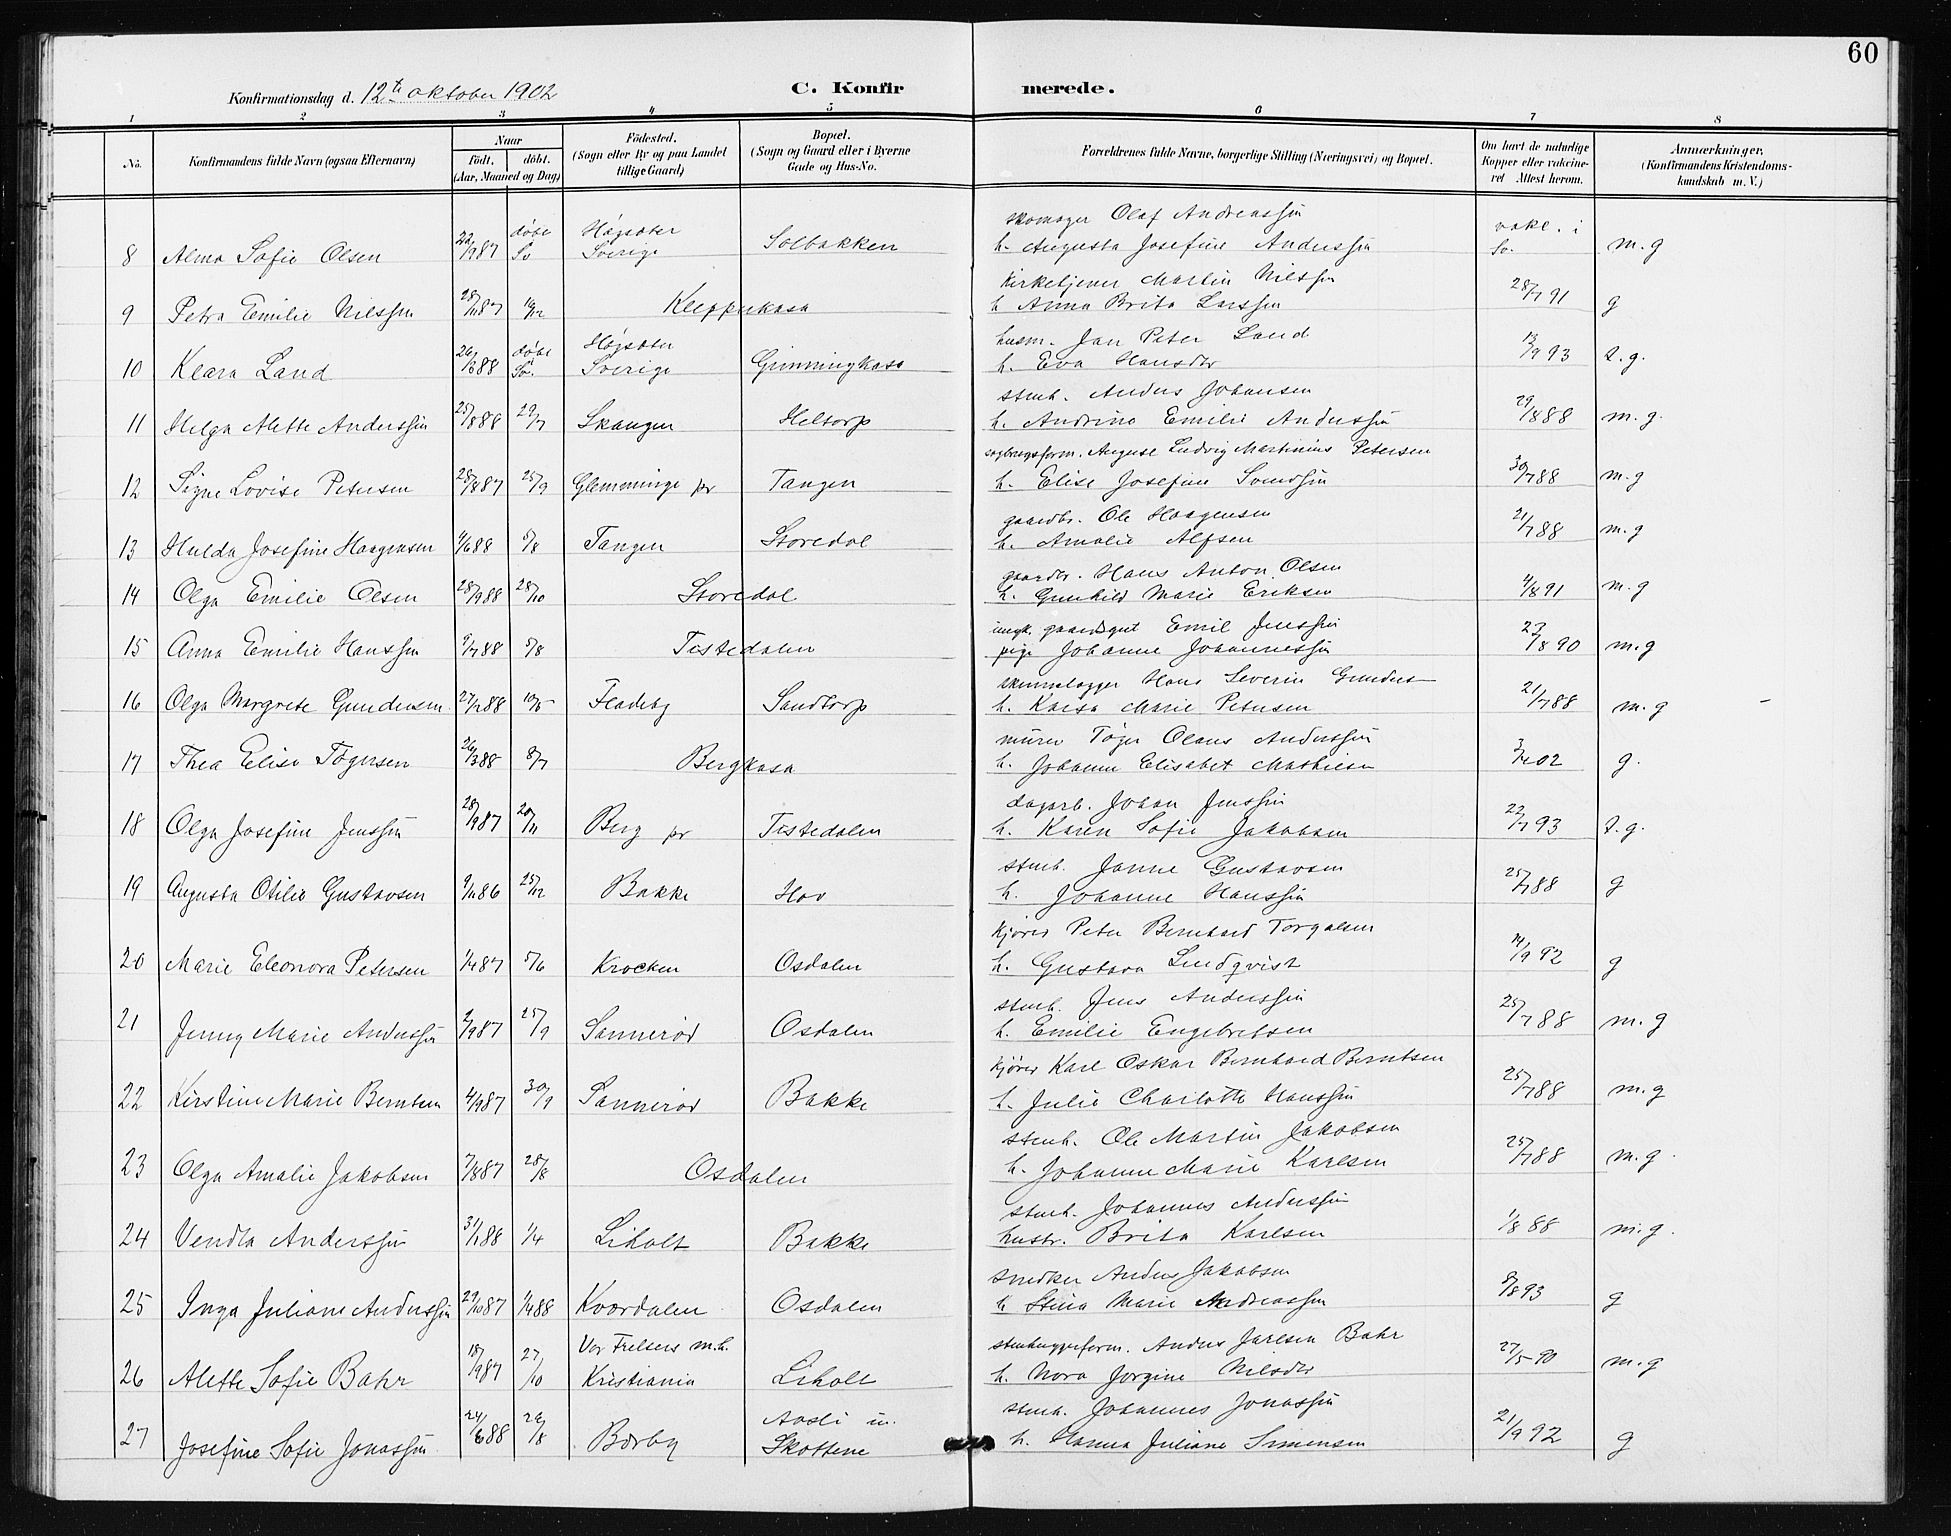 60
Konfirmationsdag d. 12te oktober 1902
C. Konfir merede.
1 2 3 4 5 6 7 8
No.
Konfirmandens fulde Navn (ogsaa Efternavn)
Naar
födt. döbt.
(Aar, Maaned og Dag)
Födested.
(Sogn eller By og paa Landet
tillige Gaard)
Bopæl.
(Sogn og Gaard eller i Byerne
Gade og Hus-No.
Forældrenes fulde Navne, borgerlige Stilling (Næringsvei) og Bopæl.
Om havt de naturlige
Kopper eller vakcine-
ret Attest herom.
Anmærkninger,
(Konfirmandens Kristendoms-
kundskab m. V.)
8 Alma Sofie Olsen 22/9 87 døbt Sv Högsäter Sverige Solbakken skomager Olaf Andreassen
h. Augusta Josefine Anderssen vakc. i Sv. m.g
9 Petra Emilie Nilssen 28/11 87 Kleppekasa kirketjener Martin Nilssen
h Anna Brita Larssen 28/7 91 g
10 Klara Land 26/6 88 døbt i Sv. Högsäter Sverige Grimmingkasa husm. Jan Peter Land
h. Eva Hansdtr 13/9 93 t.g.
11 Helga Alette Anderssen 29/7 Skangen Heltorp stenh. Anders Johansen
h. Andrine Emilie Anderssen 29/8 88 m.g.
12 Signe Lovise Petersen 28/8 87 25/9 Glemminge pr Tangen August Ludvig Martinius Petersen
h. Elise Josefine Svendsen 30/7 88 m.g
13 Hulda Josefine Haagensen 5/8 Tangen Storedal gaardbr. Ole Haagensen
h. Amalie Alfsen 21/7 88 m.g
14 Olga Emilie Olsen 28/9 88 28/10 Storedal gaardbr. Hans Anton Olsen
h. Gunhild Marie Eriksen 4/8 91 m.g
15 Anna Emilie Hanssen 9/7 88 5/8 Tistedalen ungk. gaardsgut Emil Jenssen
pige Johanne Johannessen 23/8 90 m.g
16 Olga Margrete Gundersen Fladeby Sandtorp Hans Severin Gunders
h. Kaisa Marie Petersen 21/7 88 m.g
17 Thea Elise Tøgersen 26/3 88 8/7 Bergkasa murer Tøger Olaus Anderssen
h. Johanne Elisabet Mathisen g.
18 Olga Josefine Jenssen 28/9 87 20/11 Berg pr Tistedalen dagarb. Johan Jenssen
h. Karen Sofie Jakobsen 22/7 93 t.g.
19 Augusta Otilie Gustavsen 9/11 86 25/12 Bakke Hov stenh. Janne Gustavsen
h. Johanne Hanssen 25/7 88 g
20 Marie Eleonora Petersen 1/4 87 5/6 Krocken Osdalen kjører Peter Bernhard Torgalsen
h. Gustava Lindqvist 14/9 92 g
21 Jenny Marie Anderssen 2/9 87 25/9 Sannerød Osdalen stenh. Jens Anderssen
h. Emilie Engebretsen 25/7 88 m.g
22 Kirstine Marie Berntsen 4/9 87 30/9 Sannerød Bakke kjører Karl Oskar Bernhard Berntsen
h. Julie Charlotte Hanssen 25/7 88 m.g
23 Olga Amalie Jakobsen 7/8 87 28/8 Osdalen stenh. Ole Martin Jakobsen
h. Johanne Marie Karlsen 25/7 88 m.g.
24 Vendla Anderssen 31/1 88 1/4 Liholt Bakke stenh. Johannes Anderssen
hustr. Brita Karlsen 1/8 88 m.g.
25 Inga Juliane Anderssen 29/10 87 1/4 88 Kvordalen Osdalen snedker Anders Jakobsen
h Stina Marie Andreassen 8/8 93 g
26 Alette Sofie Bahr 18/9 87 27/10 Vor Frelsers m.h. Kristiania Liholt stenhuggerform. Anders Jarlsen Bahr
h. Nora Jørgine Nilsdtr 27/5 90 m.g
27 Josefine Sofie Jonassen 24/6 88 Borby Aasli u. Skottene stenh. Johannes Jonassen
h. Hanna Juliane Simensen 21/9 92 g